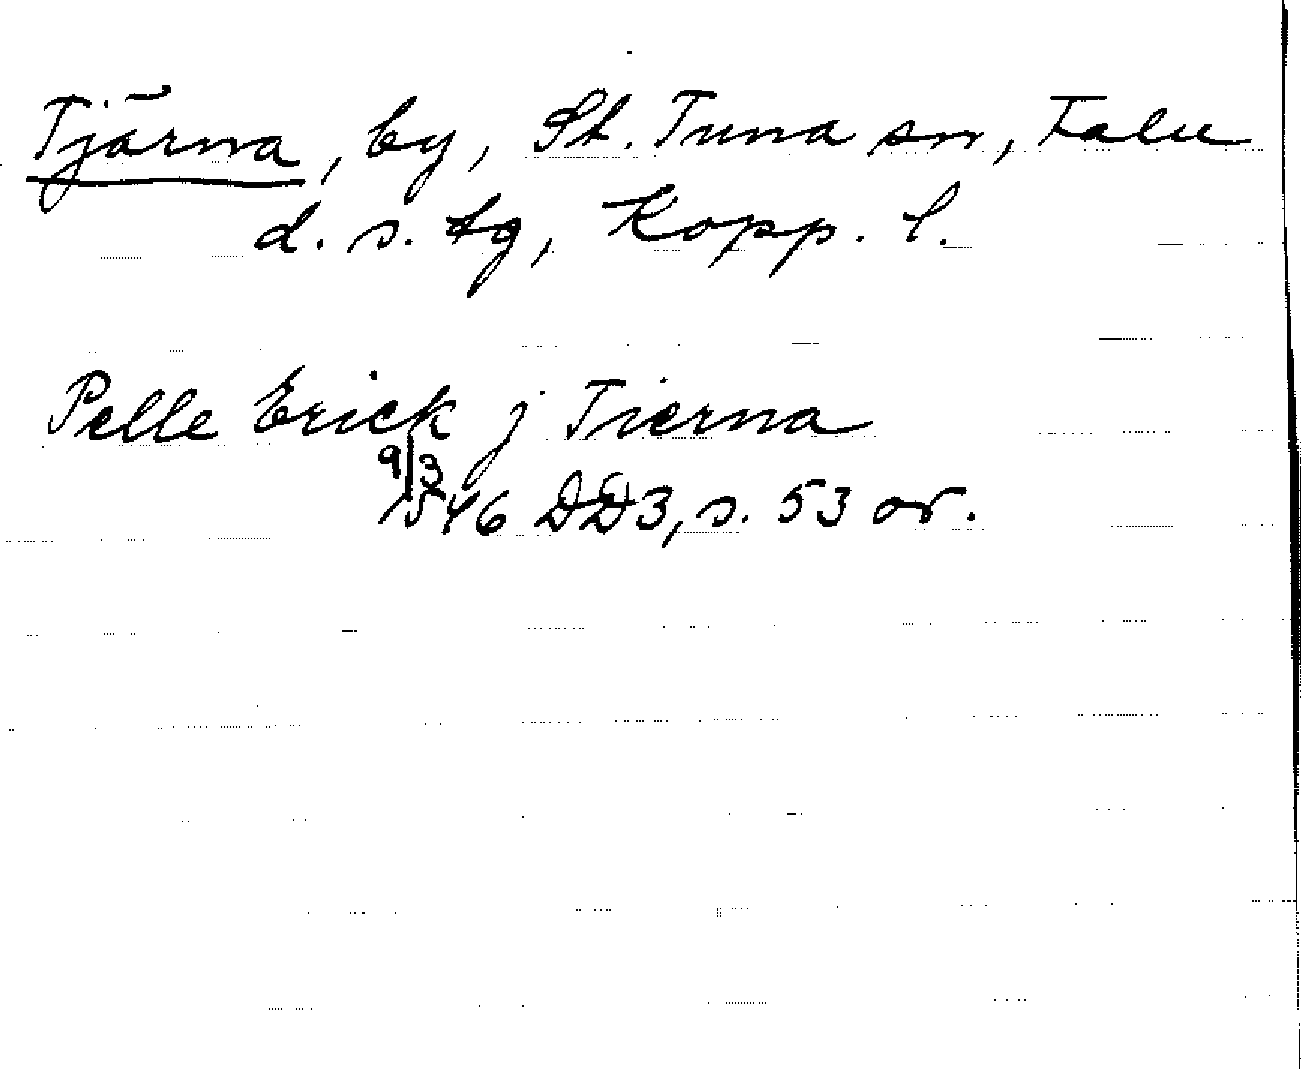 Tjärna, by, St. Tuna sn, Falu
d. s. tg, Kopp. l.
Pelle Erick j Tierna
9/3
1546 DD3, s. 53 or.